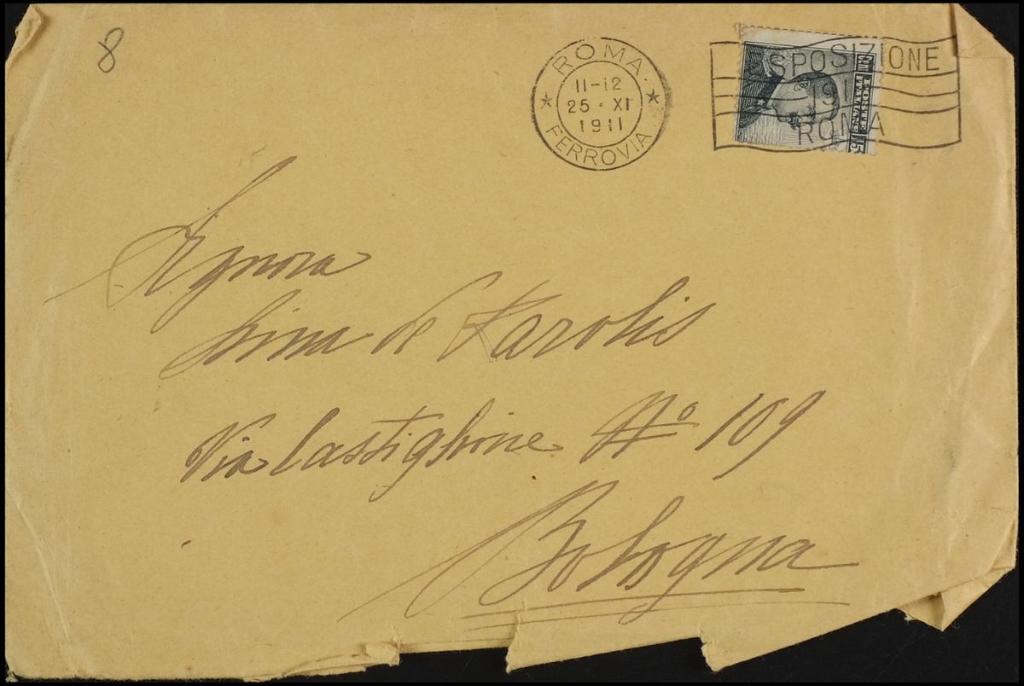 8
ROMA
11-12
25·XI
1911
FERROVIA
ESPOSIZIONE
1911
ROMA
POSTE
ITALIANE
15
Signora
Lina de Karolis
Via Castiglione No 109
Bologna